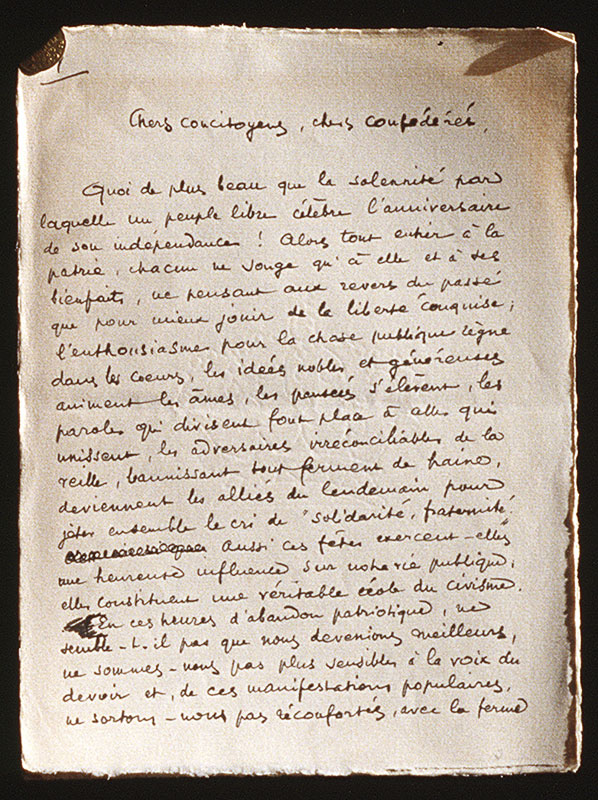 Chers concitoyens, chers confédérés,
Quoi de plus beau que la solennité par
laquelle un peuple libre célèbre l'anniversaire
de son indépendance ! Alors tout entier à la
patrie, chacun ne songe qu'à elle et à ses
bienfaits, ne pensant aux revers du passé
que pour mieux jouir de la liberté conquise ;
l'enthousiasme pour la chose publique règne
dans les coeurs, les ideés nobles et généreuses
animent les âmes, les pensées s'élèvent, les
paroles qui divisent font place à celles qui
unissent, les adversaires irréconciliables de la
veille, bannissant tout ferment de haine,
deviennent les alliés du lendemain pour
jeter ensemble le cri de "solidarité, fraternité".
Aussi ces fêtes exercent-elles
une heureuse influence sur notre vie publique,
elles constituent une véritable école du civisme.
En ces heures d'abandon patriotique, ne
semble-t-il pas que nous devenions meilleurs,
ne sommes-nous pas plus sensibles à la voix du
devoir et, de ces manifestations populaires,
ne sortons-nous pas réconfortés, avec la ferme